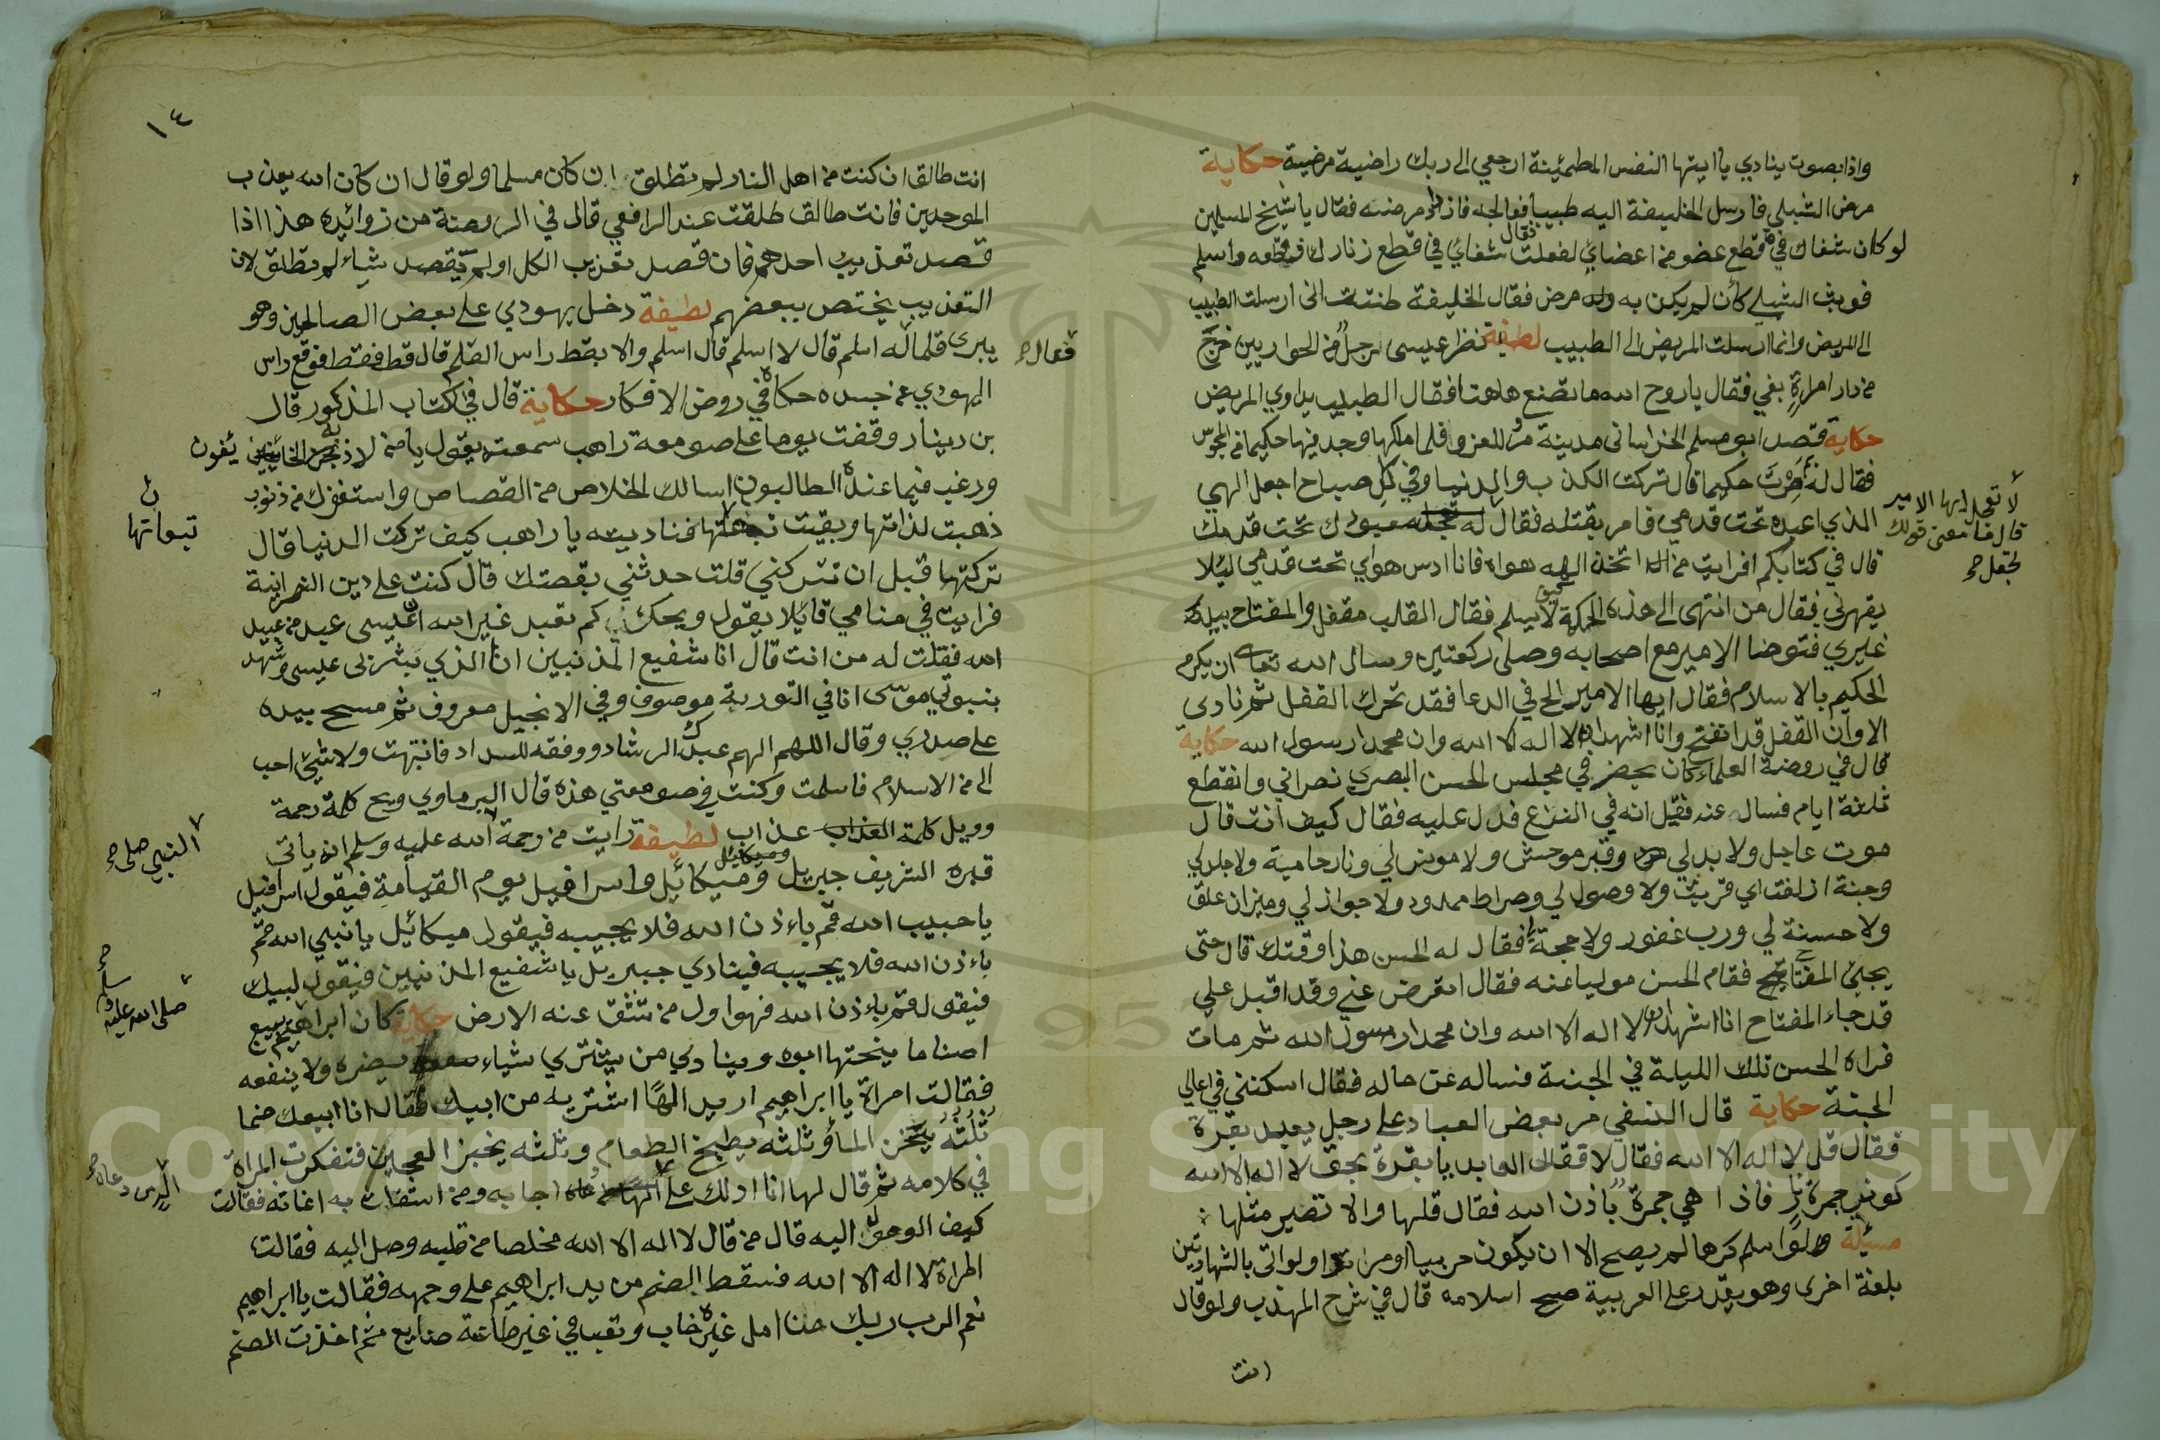 واذا بصوت ينادي يا ايتها النفس المطمئنة ارجعي الى ربك راضية مرضية حكاية
مرض الشبلي فارسل الخليفة اليه طبيبا فعالجه فازداد مرضه فقال يا شيخ المسلمين
لو كان شفاك في قطع عضو من اعضايئ لفعلت فقال شفايئ في قطع زنارك فقطعه واسلم
فوثب الشبلي كأن لم يكن به مرض فقال الخليفة ظننت انى ارسلت الطبيب
الى المريض وانما ارسلت المريض الى الطبيب لطيفة نظر عيسى رجل من الحواريين خرج
من دار امراة بغي فقال يا روح الله ما تصنع هاهنا فقال الطبيب يداوي المريض
حكاية قصد ابو مسلم الخراسانى مدينة مرو للغزو فلما ملكها وجد فيها حكيما من المجوس
فقال له بم صرت حكيما قال تركت الكذب والدنيا وفي كل صباح اجعل الهي
الذي اعبده تحت قدمي فامر بقتله فقال له تجعل معبودك تحت قدمك
لا تعجل ايها الامير
قال فما معنى قولك
تجعل صح
قال في كتابكم افرايت من اتخذ الهه هواه فانا ادس هواي تحت قدمي ليلا
يقهرني فقال من انتهى الى هذه الحكمة كيف لا يسلم فقال القلب مقفل والمفتاح بيد
غيري فتوضا الامير مع اصحابه وصلى ركعتين وسال الله تعالى ان يكرم
الحكيم بالاسلام فقال ايها الامير الح في الدعا فقد تحرك القفل ثم نادى
الا وان القفل قد انفتح وانا اشهد ان لا اله الا الله وان محمدا رسول الله حكاية
قال في روضة العلماء كان يحضر في مجلس الحسن البصري نصراني وانقطع
ثلثة ايام فسال عنه فقيل انه في النزع فدخل عليه فقال كيف انت قال
موت عاجل ولا بد لي وقبر موحش ولا مونس لي ونار حامية ولا جلد لي
وجنة ازلفت اي قربت ولا وصول لي وصراط ممدود ولا جواز لي وميزان علق
ولا حسنة لي ورب غفور ولا حجة لي فقال له الحسن هذا وقتك قال حتى
يجيئ المفتاح فقام الحسن موليا عنه فقال اتعرض عني وقد اقبل علي
قد جاء المفتاح انا اشهد ان لا اله الا الله وان محمدا رسول الله ثم مات
فراه الحسن تلك الليلة في الجنة فساله عن حاله فقال اسكنني في اعالي
الجنة حكاية قال النسفي مر بعض العباد على رجل يعبد بقرة
فقال قل لا اله الا الله فقال لا فقال العابد يا بقرة بحق لا اله الا الله
كوني جمرة نار فاذا هي جمرة باذن الله فقال قلها والا تصير مثلها
مسئلة ولو اسلم كرها لم يصح الا ان يكون حربيا او مرتدا ولو اتى بالشهادتين
بلغة اخرى وهو يقدر على العربية صح اسلامه قال في شرح المهذب ولو قال
انت
١٤
انت طالق ان كنت من اهل النار لم تطلق ان كان مسلما ولو قال ان كان الله يعذب
الموحدين فانت طالق طلقت عند الرافعي قال في الروضة من زوائده هذا اذا
قصد تعذيب احدهم فان قصد تعذيب الكل او لم يقصد شياء لم تطلق لان
التعذيب يختص ببعضهم لطيفة دخل يهودي على بعض الصالحين وهو
يبري قلما له اسلم قال لا اسلم قال اسلم والا يقط راس القلم قال قط فقط فوقع راس
فقال صح
اليهودي عن جسده حكاه في روض الافكار حكاية قال في الكتاب المذكور قال
بن دينار وقفت يوما على صومعة راهب سمعته يقول يا من لاذ به الخائفين يفون
ورغب فيما عنده الطالبون اسالك الخلاص من القصاص واستغفرك من ذنوب
ذهبت لذاتها وبقيت تبعاتها فناديته يا راهب كيف تركت الدنيا قال
ن
تبعاتها
تركتها قبل ان تتركني قلت حدثني بقصتك قال كنت على دين النصرانية
فرايت في منامي قائلا يقول ويحك كم تعبد غير الله ان عيسى عبد من عبيد
الله فقلت له من انت قال انا شفيع المذنبين انا الذي بشر بى عيسى وشهد
بنبوتي موسى انا في التورية موصوف وفي الانجيل معروف ثم مسح بيده
على صدري وقال اللهم الهم عبدك الرشاد ووفقه للسداد فانتبهت ولا شيئ احب
الى من الاسلام فاسلمت وكنت في صومعتي هذه قال البرماوي ويح كلمة رحمة
وويل كلمة العذاب عذاب لطيفة رايت من رحمة الله عليه وسلم انه ياتى
النبي صلى صح
قبره الشريف جبريل وميكائيل واسرافيل يوم القيامة فيقول اسرافيل
يا حبيب الله قم باءذن الله فلا يجيبه فيقول ميكائيل يا نبي الله قم
باءذن الله فلا يجيبه فينادي جبريل يا شفيع المذنبين فيقول لبيك
صلى الله عليه وسلم صح
فيقول قم باءذن الله فهو اول من تنشق عنه الارض حكاية كان ابراهيم يبيع
اصناما ينحتها ابوه وينادي من يشتري شياء يضره ولا ينفعه
فقالت امراة يا ابراهيم اريد الها اشتريه من ابيك فقال انا ابيعك صنما
ثلثه يسخن الماء وثلثه يطبخ الطعام وثلثه يخبز العجين فتفكرت المراة
في كلامه ثم قال لها انا ادلك على اله من دعاه اجابه ومن استغاث به اغاثه فقالت
الذي دعاه صح
كيف الوصول اليه قال من قال لا اله الا الله مخلصا من قلبه وصل اليه فقالت
المراة لا اله الا الله فسقط الصنم من يد ابراهيم على وجهه فقالت يا ابراهيم
نعم الرب ربك من امل غيره خاب وتعبا في غير طاعة ضايع ثم اخذت الصنم
Copyright © King Saud University